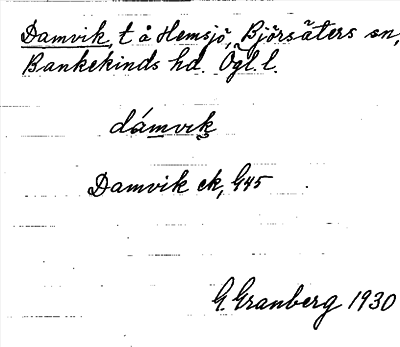 Damvik, t å Hemsjö, Björsäters sn,
Bankekinds hd. Ögl. l.
dámvik
Damvik ek, G45
G. Granberg 1930